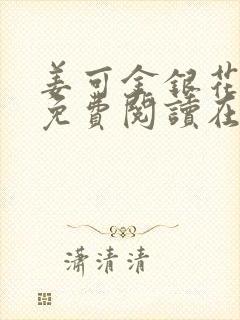 姜可金銀花
免費閱讀在
瀟清清